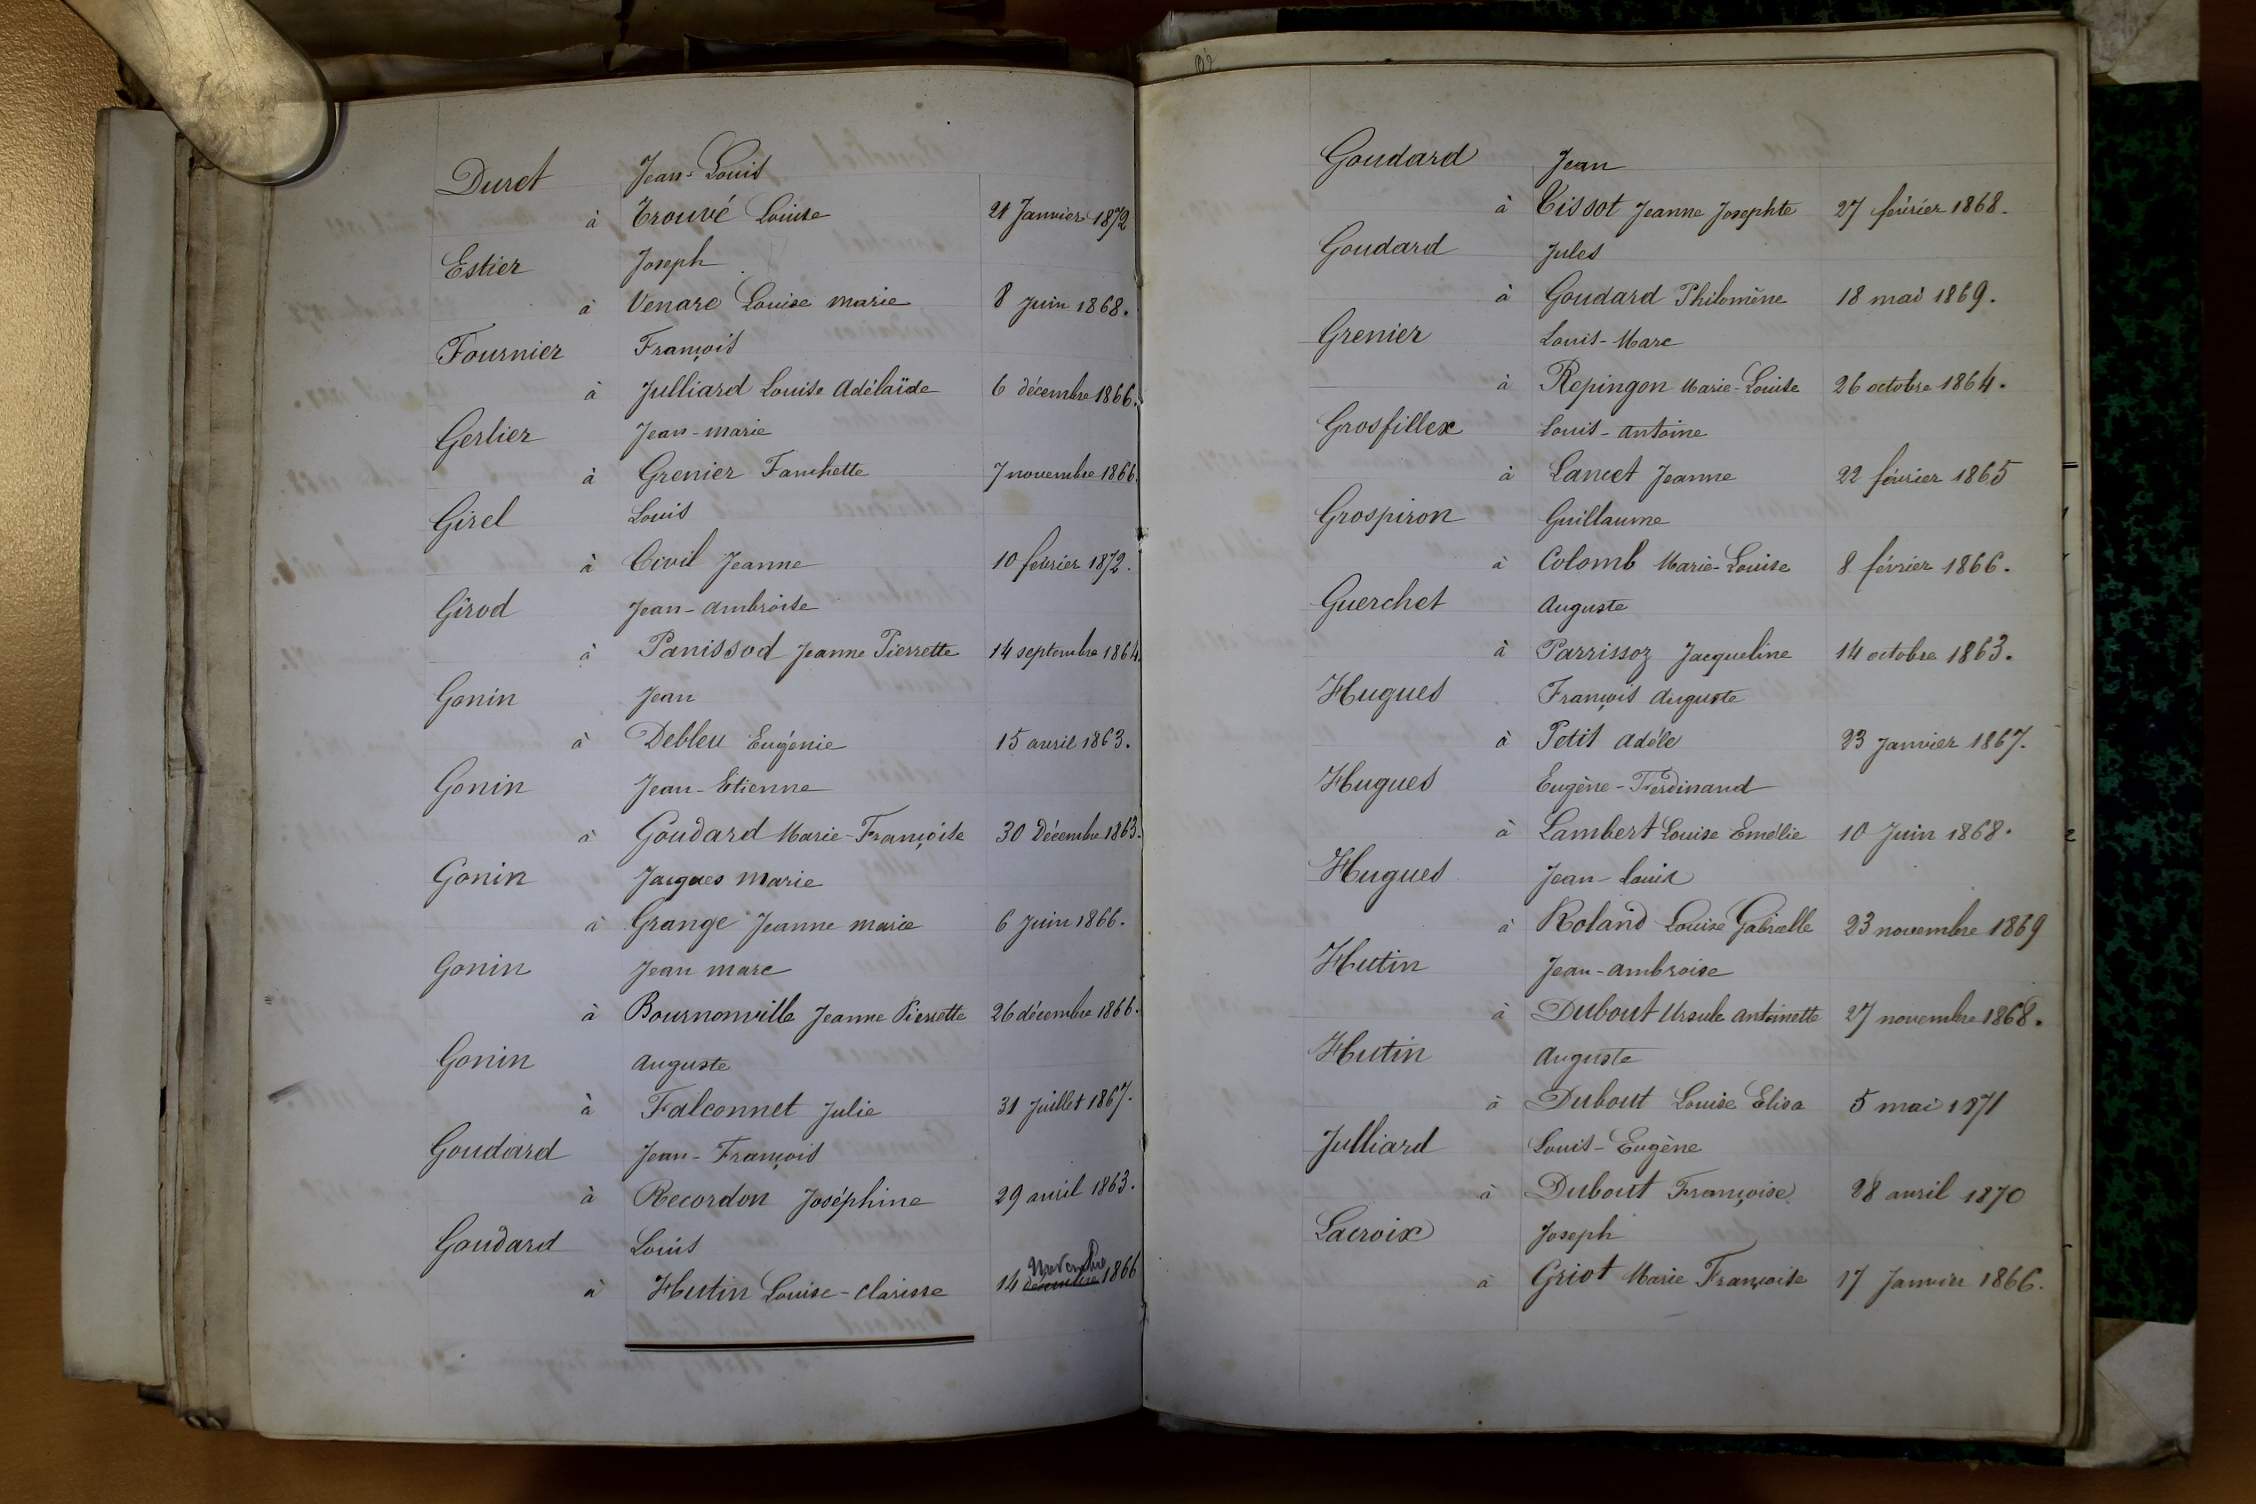 Duret Jean-Louis
à Trouvé Louise 21 Janvier 1872
Estier Joseph
à Venare Louise marie 8 Juin 1868.
Fournier François
à Julliard Louise Adélaïde 6 décembre 1866.
Gerlier Jean-marie
à Grenier Fanchette 7 novembre 1866.
Girel Louis
à Civil Jeanne 10 février 1872.
Girod Jean-ambroise
à Panissod Jeanne Pierrette 14 septembre 1864.
Gonin Jean
à Debleu Eugénie 15 avril 1863.
Gonin Jean-Etienne
à Goudard Marie-Françoise 30 Décembre 1863.
Gonin Jacques Marie
à Grange Jeanne marie 6 Juin 1866.
Gonin Jean marc
à Bournonville Jeanne Pierrette 26 décembre 1866.
Gonin auguste
à Falconnet Julie 31 Juillet 1867.
Goudard Jean-François
à Recordon Joséphine 29 avril 1863.
Goudard Louis
novembre
à Hutin Louise-Clarisse 14 décembre 1866
Goudard Jean
à Tissot Jeanne Josephte 27 février 1868.
Goudard Jules
à Goudard Philomène 18 mai 1869.
Grenier Louis-Marc
à Repingon Marie-Louise 26 octobre 1864.
Grosfillex Louis-antoine
à Lancet Jeanne 22 février 1865
Grospiron Guillaume
à Colomb Marie-Louise 8 février 1866.
Guerchet Auguste
à Parrissoz Jacqueline 14 octobre 1863.
Hugues François Auguste
à Petit adéle 23 Janvier 1867.
Hugues Eugène-Ferdinand
à Lambert Louise Emélie 10 Juin 1868.
Hugues Jean-louis
à Roland Louise Gabrielle 23 novembre 1869
Hutin Jean-ambroise
à Dubout Ursule antoinette 27 novembre 1868.
Hutin Auguste
à Dubout Louise Elisa 5 mai 1871
Julliard Louis-Eugène
à Dubout Françoise 28 avril 1870
Lacroix Joseph
à Griot Marie Françoise 17 Janvier 1866.